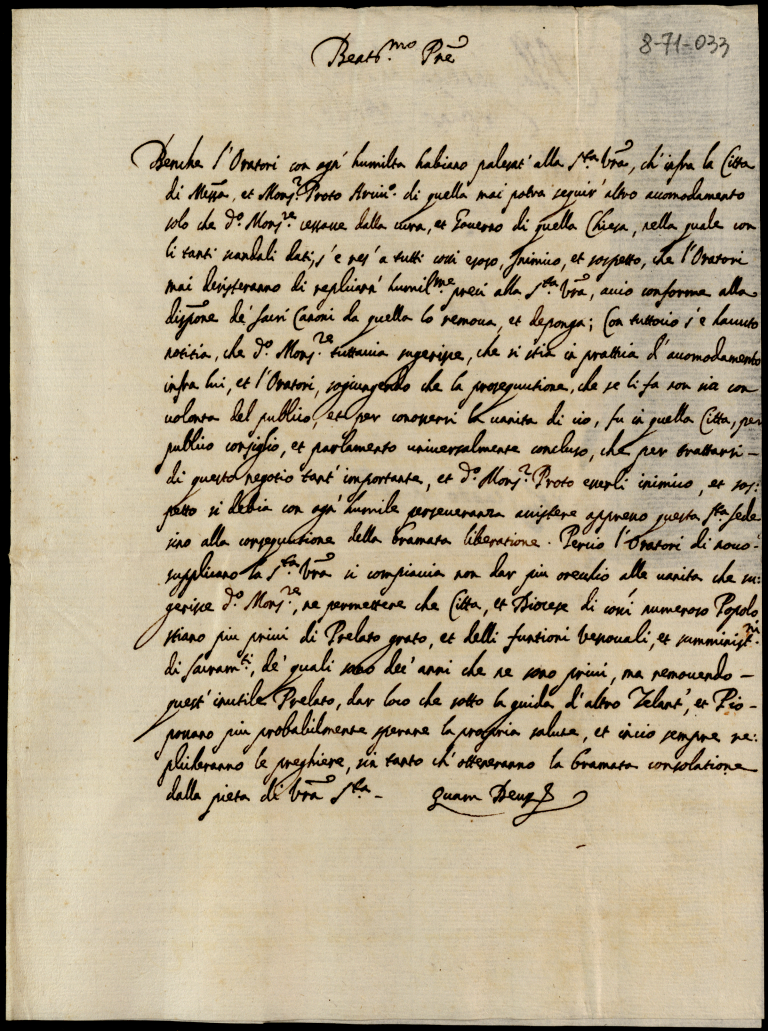 8-71-033
Beat.mo Pre
Benche l'Oratori con ogn' humilta habiano palesat' alla S.ta Vra, ch' infra la Citta
di Messa, et Mons.r Proto Arciu.o di quella mai potra seguir' altro acomodamento
solo che d.o Mons.re cessasse dalla cura, et Governo di quella Chiesa, nella quale con
li tanti scandali dati, s'e res' a tutti cossi esoso, Inimico, et sospetto, che l'Oratori
mai desisteranno di replicarn' humil.me preci alla S.ta Vra, accio conforme alla
dispone de' Sacri Canoni da quella lo remova, et deponga; Con tuttocio s'e havuto
notitia, che d.o Mons.re tuttavia sugerisce, che si stia in prattica d'acomodamento
infra lui, et l'Oratori, sogiungendo che la prosequutione, che se li fa non sia con
volonta del publico, et per conoscersi la vanita di cio, fu in quella Citta, per
publico consiglio, et parlamento universalmente concluso, che per trattarsi -
di questo negotio tant' importante, et d.o Mons.r Proto esserli inimico, et sos:
petto si debia con ogn' humile perseveranza assistere appresso questa S.ta Sede
sino alla consequutione della bramata liberatione. Percio l'Oratori di novo
supplicano la S.ta Vra si compiaccia non dar piu orecchio alle vanita che su:
gerisce d.o Mons.re, ne permettere che Citta, et Diocese di cosi numeroso Popolo
stiano piu privi di Prelato grato, et delli funtioni Vescovali, et summinist.ni
di Sacram.ti, de' quali sono diec' anni che ne sono privi, ma removendo -
quest' inutile Prelato, dar loco che sotto la guida d'altro Zelant', et Pio -
possano piu probabilmente sperare la propria salute, et incio sempre re:
plicheranno le preghiere, sin tanto ch' otteneranno la bramata consolatione
dalla pieta di Vra S.ta - Quam Deus